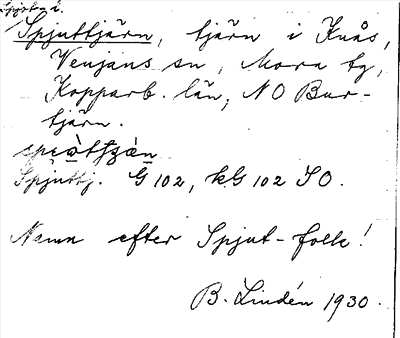 Spjuttjärn, tjärn i Knås,
Venjans sn, Mora tg,
Kopparb. län, NO Bur-
tjärn.
Spjuttj. G 102, kG 102 SO.
Namn efter Spjut-folk!
B. Lindén 1930.